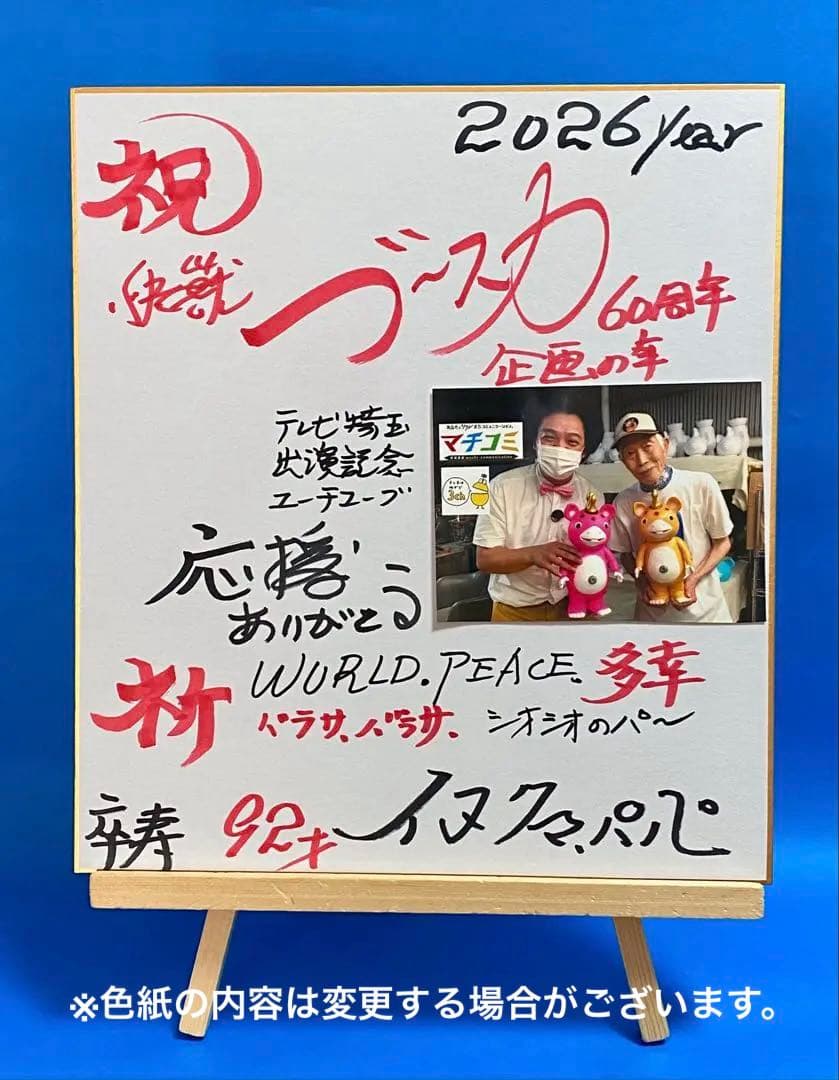 2026 year
祝
快獣
ブースカ
60周年
企画の年
テレビ埼玉
出演記念
ユーチューブ
マチコミ
3ch
応援
ありがとう
祈 WORLD.PEACE. 多幸
バラサ、バラサ、シオシオのパ〜
卒寿 92才 イヌクマ、パパ
※色紙の内容は変更する場合がございます。